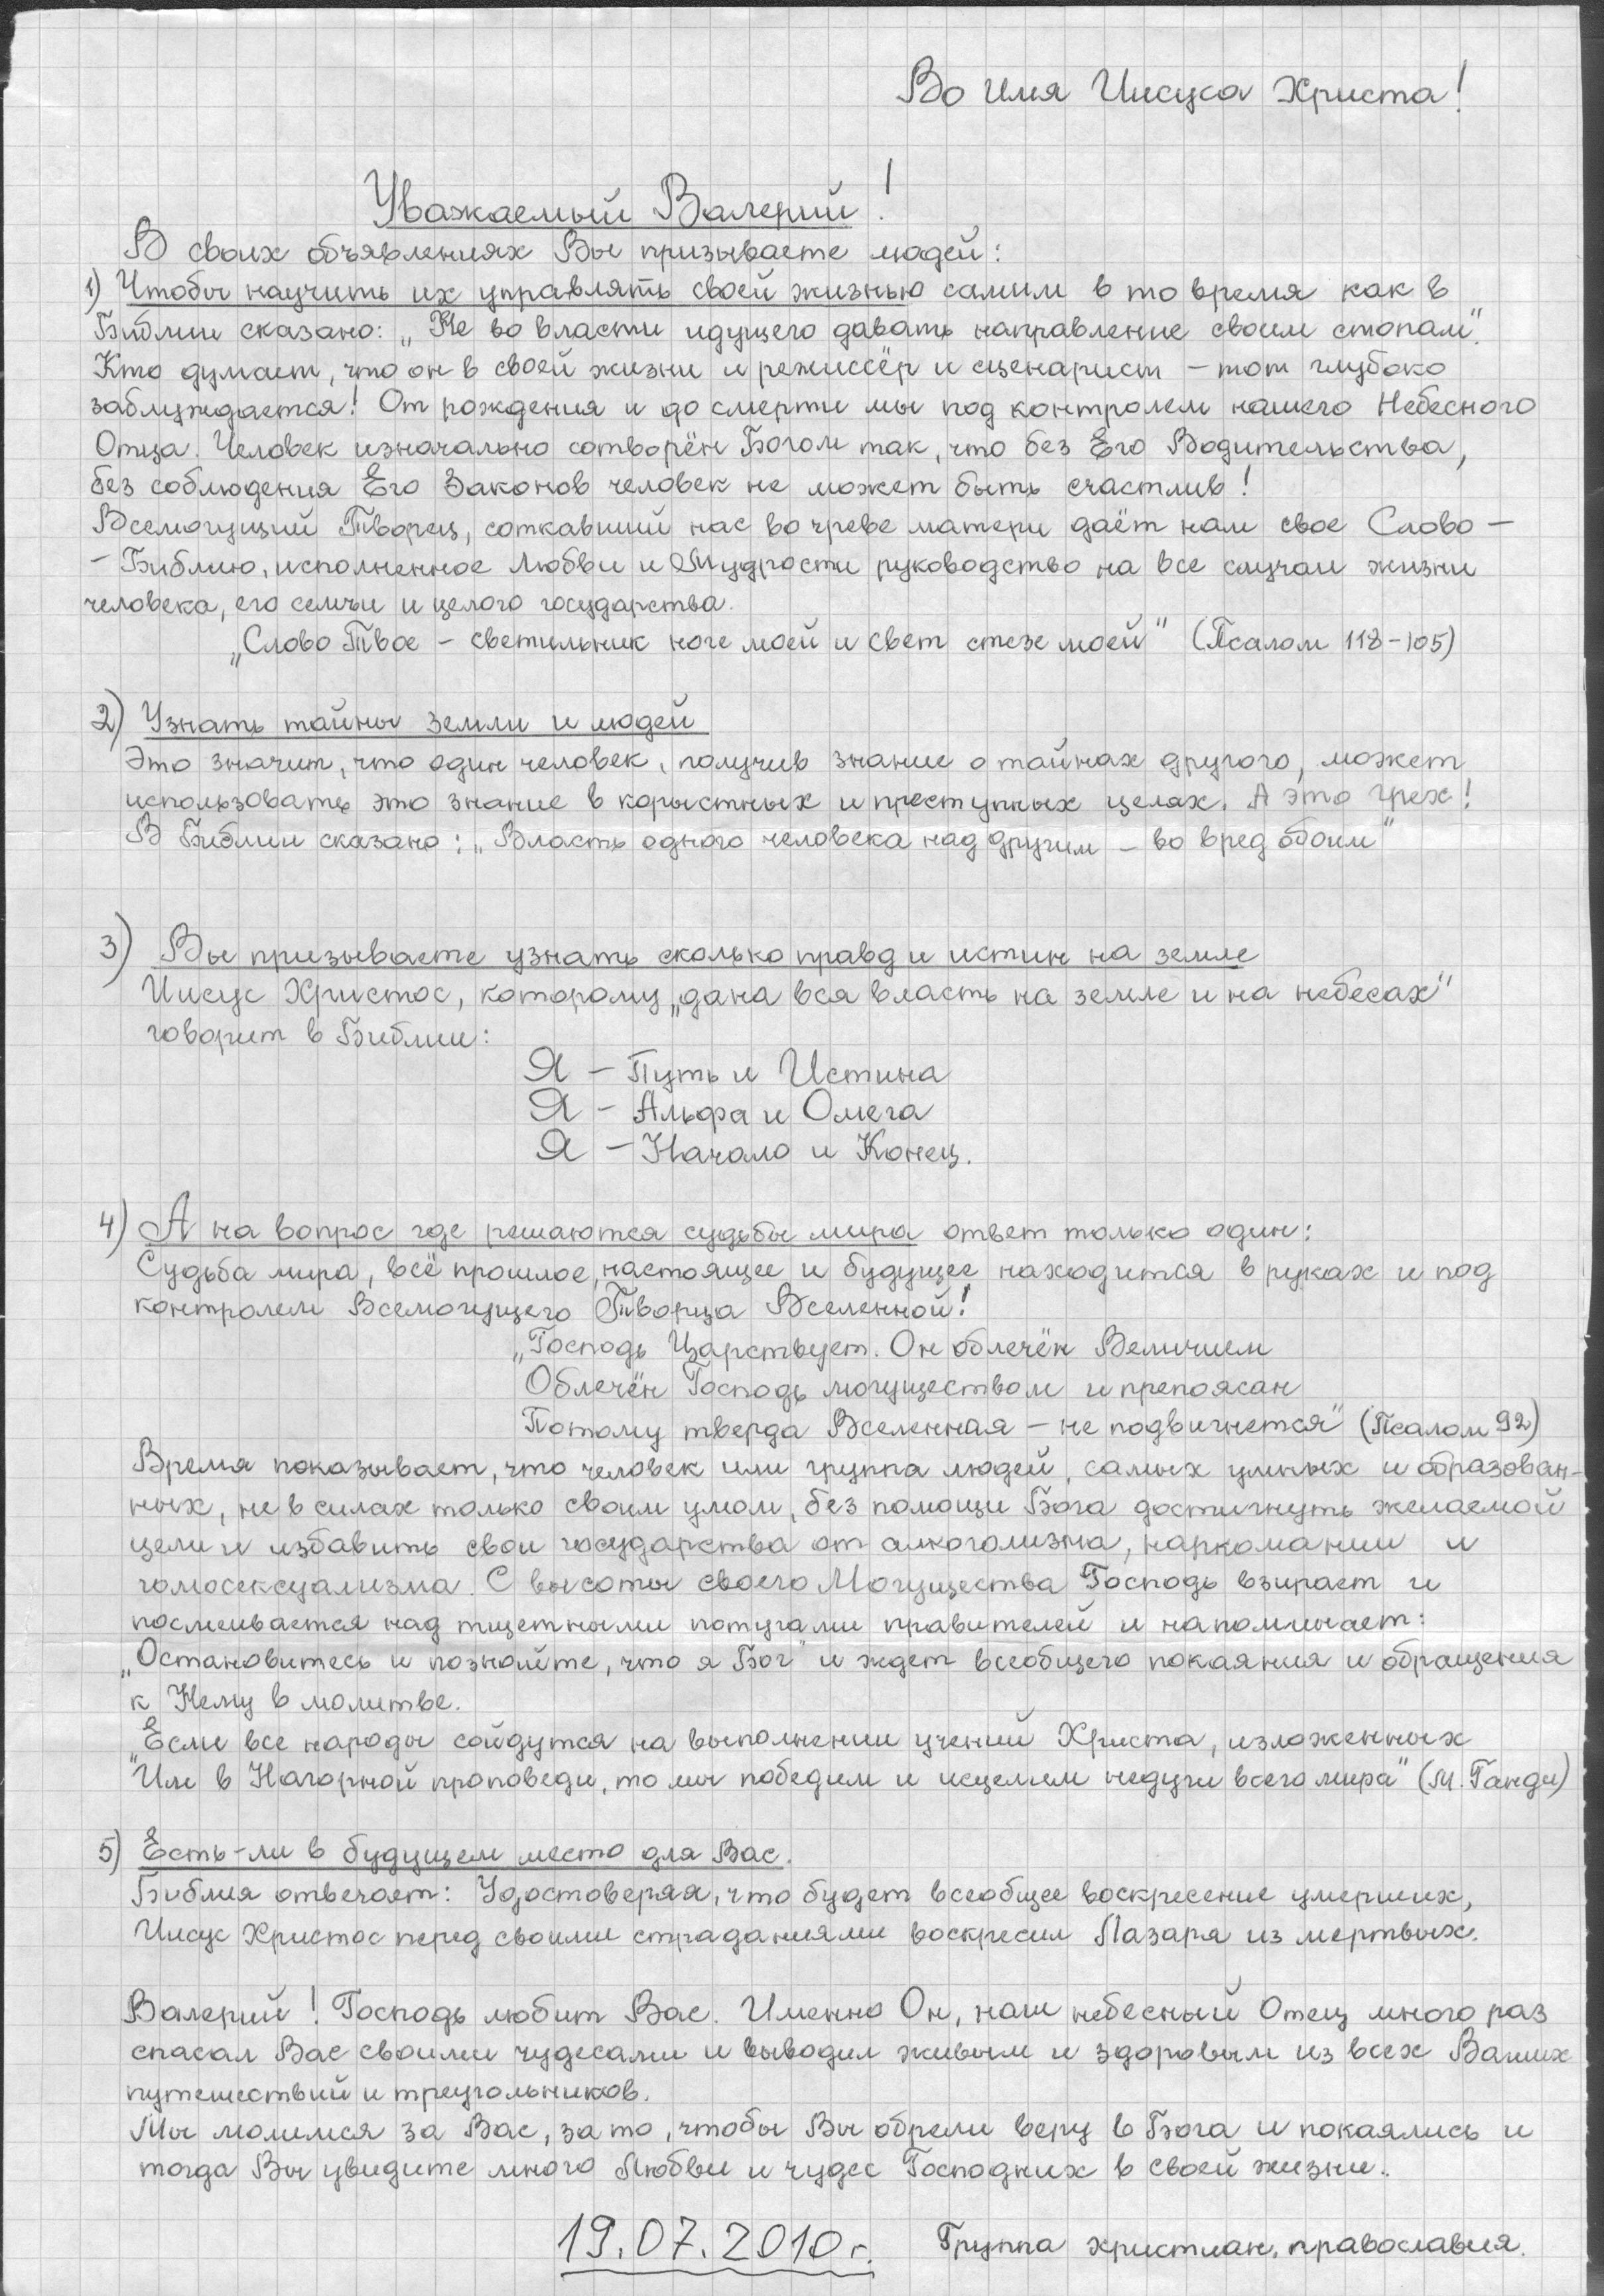 Во имя Иисуса Христа!
Уважаемый Валерий!
В своих объявлениях Вы призываете людей:
1) Чтобы научить их управлять своей жизнью самим в то время как в
Библии сказано: „Не во власти идущего давать направление своим стопам".
Кто думает, что он в своей жизни и режиссёр и сценарист – тот глубоко
заблуждается! От рождения и до смерти мы под контролем нашего Небесного
Отца. Человек изначально сотворён Богом так, что без Его Водительства,
без соблюдения Его Законов человек не может быть счастлив!
Всемогущий Творец, соткавший нас во чреве матери даёт нам свое Слово –
– Библию, исполненное Любви и Мудрости руководство на все случаи жизни
человека, его семьи и целого государства.
„Слово Твое – светильник ноге моей и свет стезе моей" (Псалом 118-105)
2) Узнать тайны земли и людей
Это значит, что один человек, получив знание о тайнах другого, может
использовать это знание в корыстных и преступных целях. А это грех!
В Библии сказано: „Власть одного человека над другим – во вред обоим"
3) Вы призываете узнать сколько правд и истин на земле
Иисус Христос, которому „дана вся власть на земле и на небесах"
говорит в Библии:
Я – Путь и Истина
Я – Альфа и Омега
Я – Начало и Конец.
4) А на вопрос где решаются судьбы мира ответ только один:
Судьба мира, всё прошлое, настоящее и будущее находится в руках и под
контролем Всемогущего Творца Вселенной!
„Господь Царствует. Он облечён Величием
Облечён Господь могуществом и препоясан
Потому тверда Вселенная – не подвигнется" (Псалом 92)
Время показывает, что человек или группа людей, самых умных и образован-
ных, не в силах только своим умом, без помощи Бога достигнуть желаемой
цели и избавить свои государства от алкоголизма, наркомании и
гомосексуализма. С высоты своего Могущества Господь взирает и
посмеивается над тщетными потугами правителей и напоминает:
„Остановитесь и познайте, что я Бог" и ждет всеобщего покаяния и обращения
к Нему в молитве.
„Если все народы сойдутся на выполнении учений Христа, изложенных
Им в Нагорной проповеди, то мы победим и исцелим недуги всего мира" (М. Ганди)
5) Есть-ли в будущем место для Вас.
Библия отвечает: Удостоверяя, что будет всеобщее воскресение умерших,
Иисус Христос перед своими страданиями воскресил Лазаря из мертвых.
Валерий! Господь любит Вас. Именно Он, наш небесный Отец много раз
спасал Вас своими чудесами и выводил живым и здоровым из всех Ваших
путешествий и треугольников.
Мы молимся за Вас, за то, чтобы Вы обрели веру в Бога и покаялись и
тогда Вы увидите много Любви и чудес Господних в своей жизни.
19.07.2010 г. Группа христиан, православия.